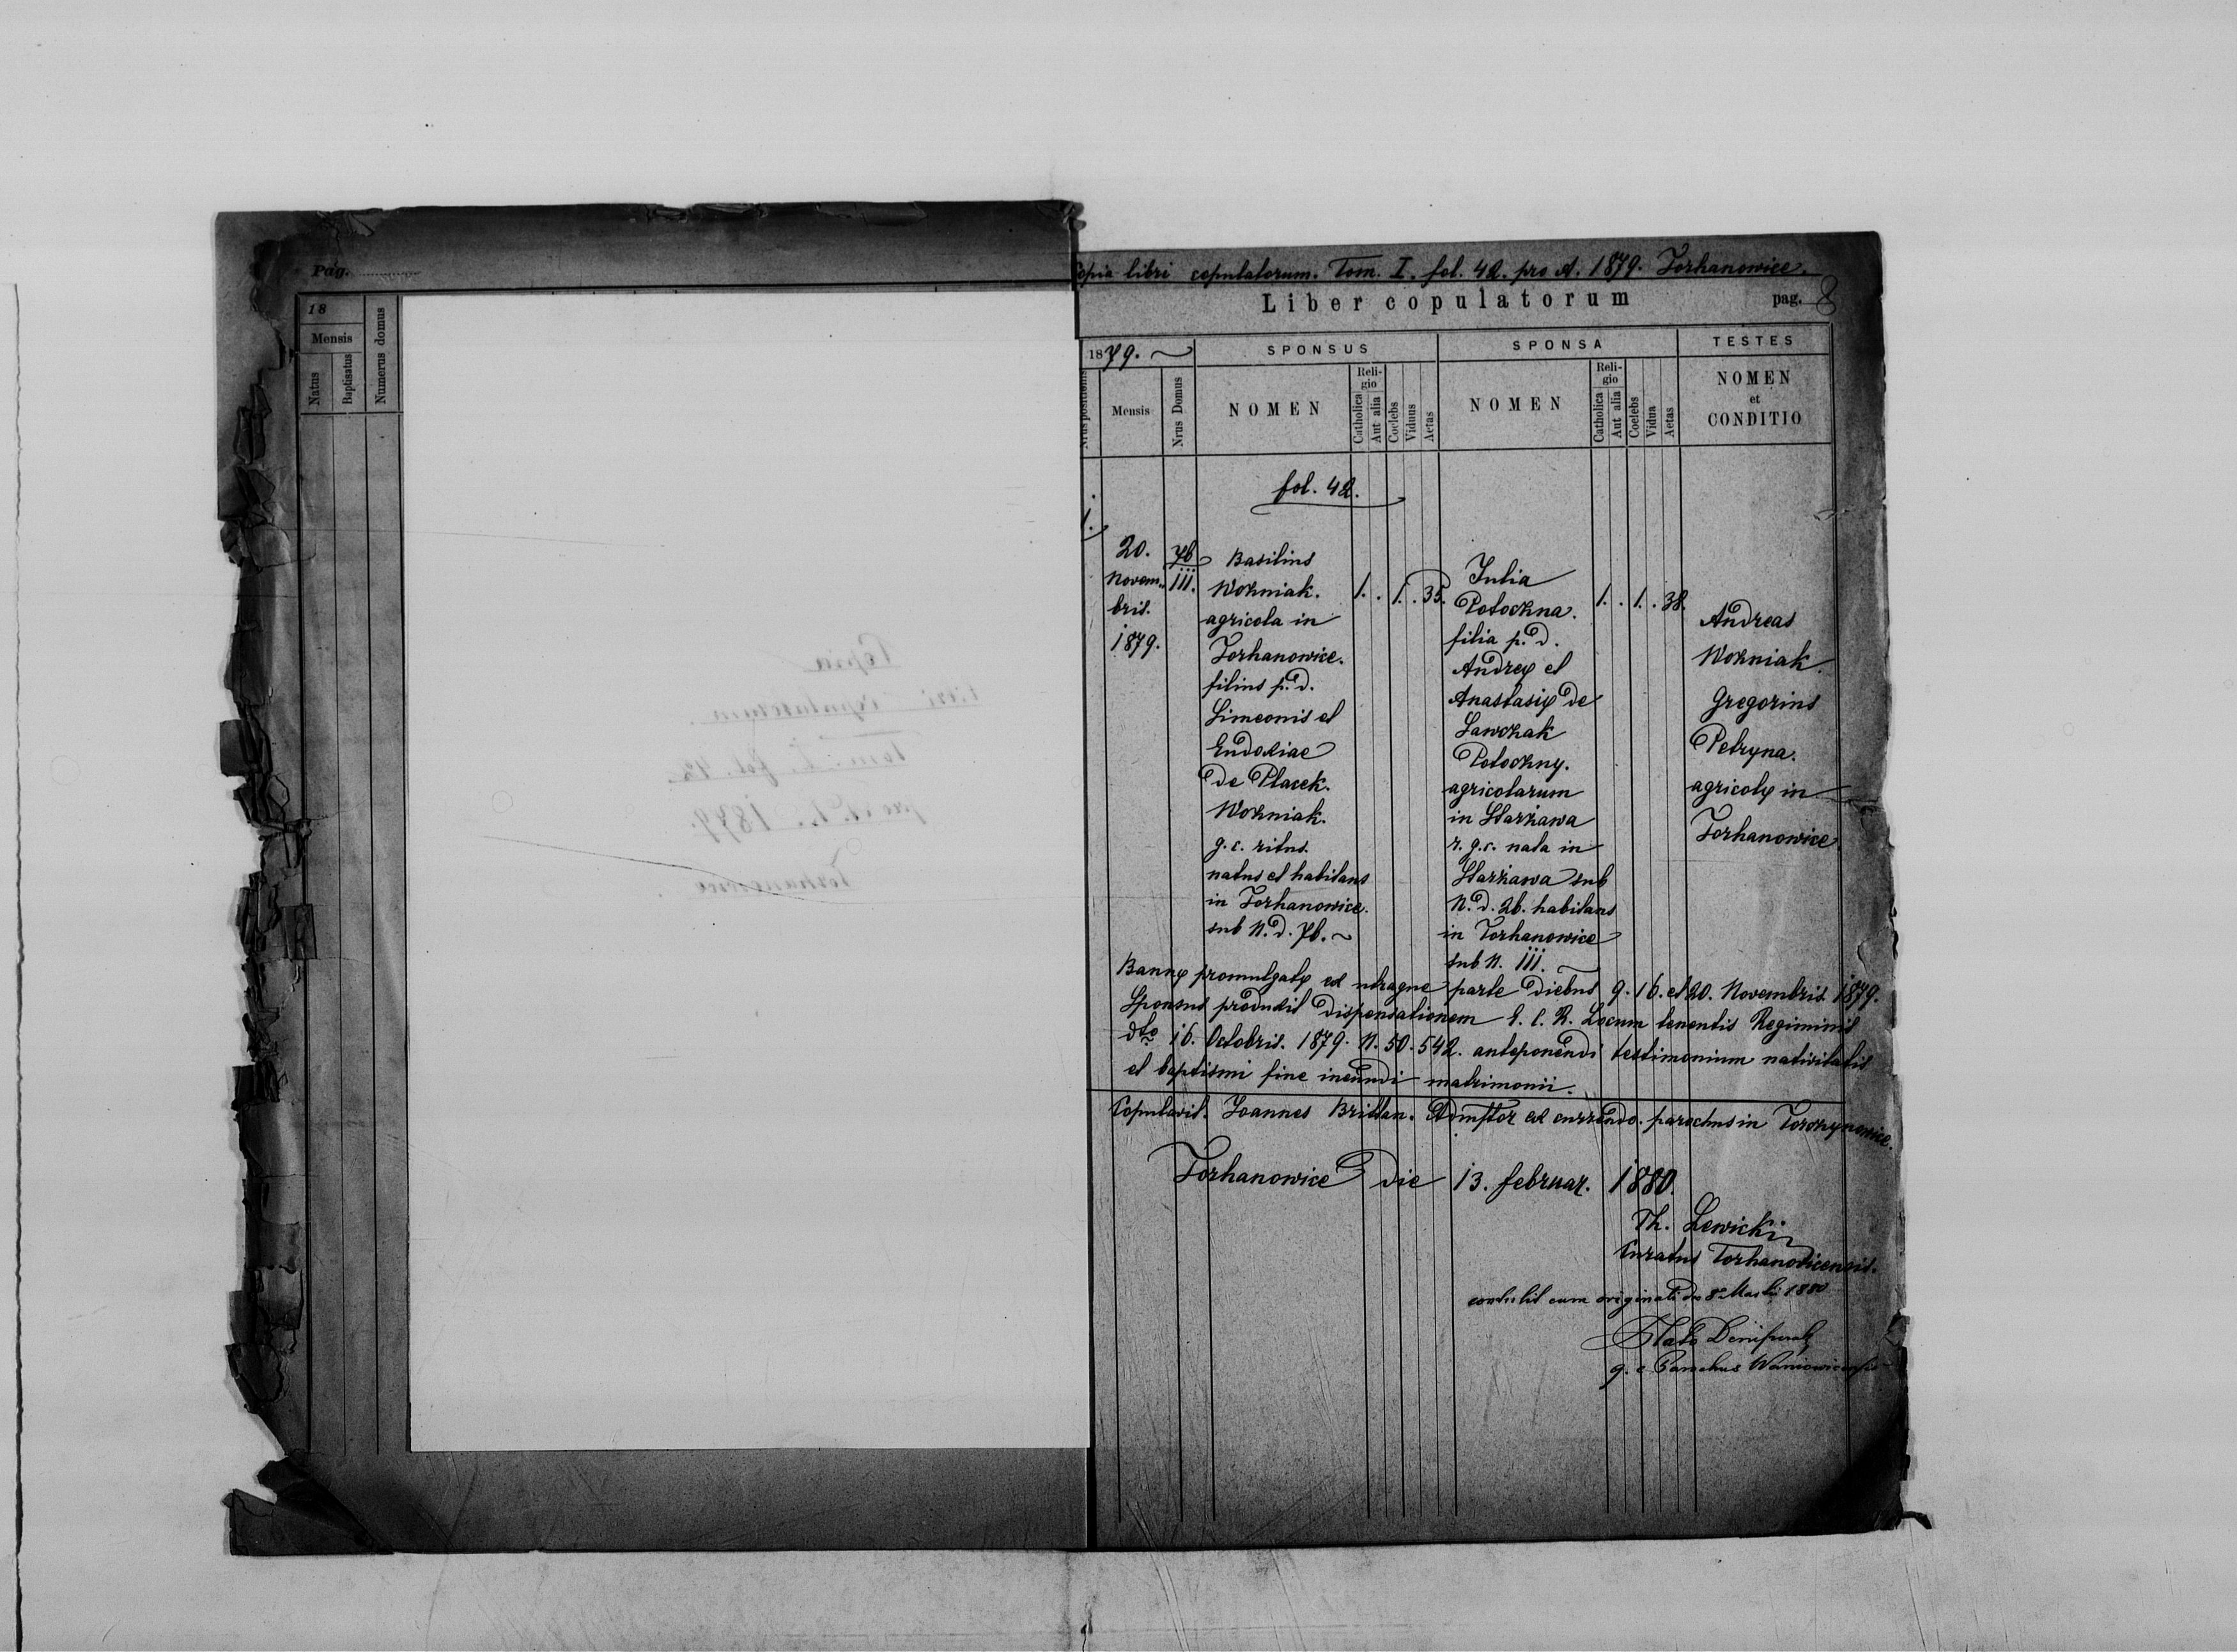 Pag.
18
Mensis
Natus
Baptisatus
Numerus domus
Copia libri copulatorum. Tom. I. fol. 42. pro A. 1879. Torhanowice.
Liber copulatorum pag. 8
1879.
SPONSUS
SPONSA
TESTES
Nrus positionis
Mensis
Nrus Domus
NOMEN
Reli-
gio
Catholica
Aut alia
Coelebs
Viduus
Aetas
NOMEN
Reli-
gio
Catholica
Aut alia
Coelebs
Vidua
Aetas
NOMEN
et
CONDITIO
fol. 42.
1.
20.
Novem-
bris.
1879.
76
111.
Basilius
Wozniak.
agricola in
Torhanowice.
filius p. d.
Simeonis et
Eudoxiae
de Placek.
Wozniak.
g. c. ritus.
natus et habitans
in Torhanowice.
sub N. d. 76.
1. . 1. . 35.
Julia
Potoczna.
filia p. d.
Andreę et
Anastasię de
Lawczak
Potoczny.
agricolarum
in Starzawa
r. g. c. nata in
Starzawa sub
N. d. 26. habitans
in Torhanowice
sub N. 111.
1. . 1. . 38.
Andreas
Wozniak.
Gregorius
Petryna.
agricolę in
Torhanowice
Bannę promulgatę ex utraque parte diebus 9. 16. et 20. Novembris 1879.
Sponsus produxit dispensationem C. C. R. Locum tenentis Regiminis
dto 16. Octobris. 1879. N. 50.542. anteponendi testimonium nativitatis
et baptismi fine ineundi matrimonii.
Copulavit. Joannes Brittan. Admstor ex currendo. parochus in Torczynowice.
Torhanowice die 13. februar. 1880.
Th. Lewicki
Curatus Torhanovicensis.
contulit cum originali de 8 Martii 1880
g. c. Parochus Waniowicensis
Copia
libri copulatorum.
Tom. I. fol. 42.
pro A. D. 1879.
Torhanowice